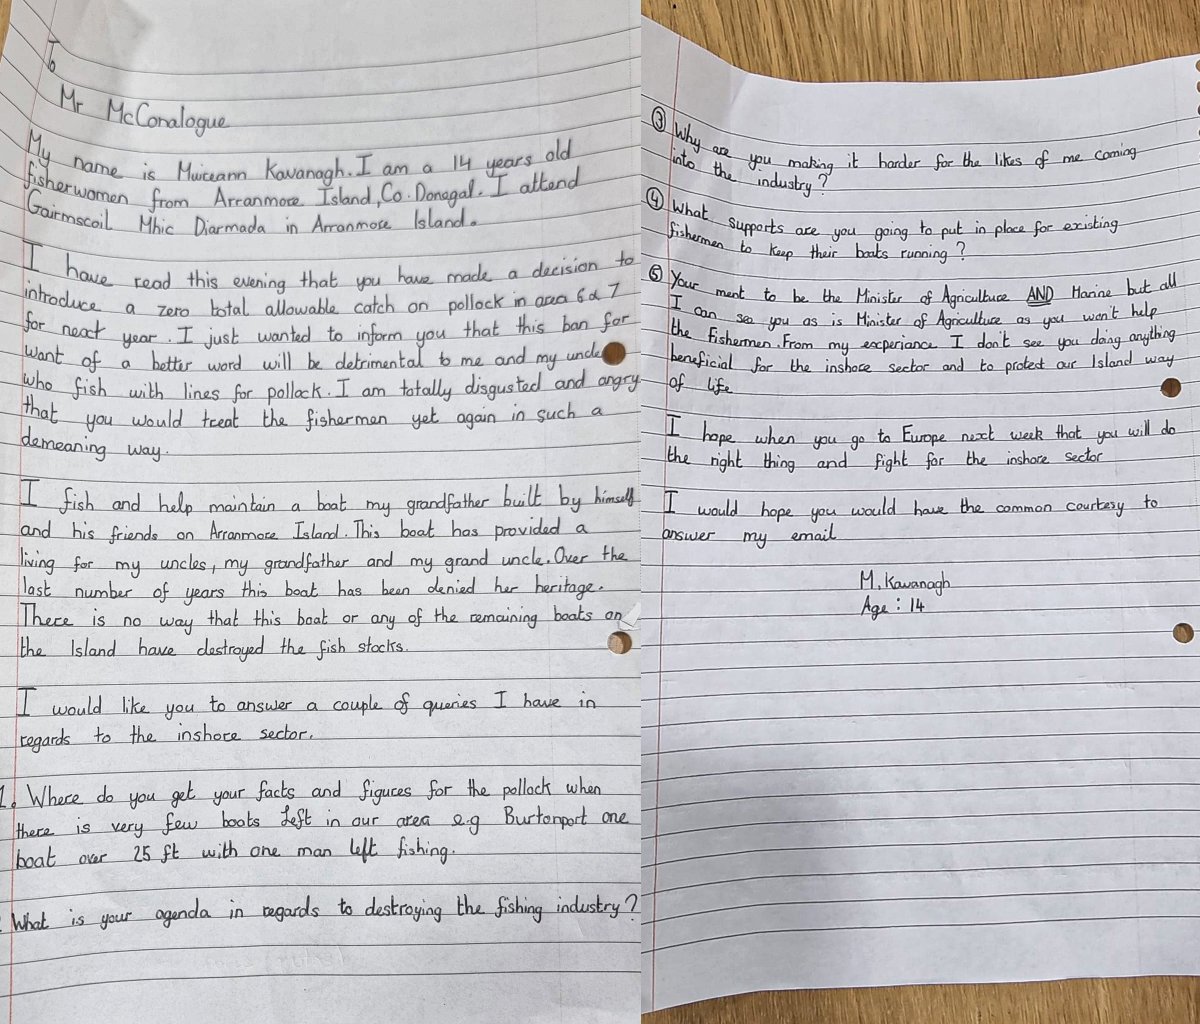 To
Mr McConalogue
My name is Muireann Kavanagh. I am a 14 years old
fisherwomen from Arranmore Island, Co. Donegal. I attend
Gairmscoil Mhic Diarmada in Arranmore Island.
I have read this evening that you have made a decision to
introduce a zero total allowable catch on pollock in area 6 & 7
for next year. I just wanted to inform you that this ban for
want of a better word will be detrimental to me and my uncle
who fish with lines for pollock. I am totally disgusted and angry
that you would treat the fishermen yet again in such a
demeaning way.
I fish and help maintain a boat my grandfather built by himself
and his friends on Arranmore Island. This boat has provided a
living for my uncles, my grandfather and my grand uncle. Over the
last number of years this boat has been denied her heritage.
There is no way that this boat or any of the remaining boats on
the Island have destroyed the fish stocks.
I would like you to answer a couple of queries I have in
regards to the inshore sector.
1. Where do you get your facts and figures for the pollock when
there is very few boats left in our area e.g Burtonport one
boat over 25 ft with one man left fishing.
What is your agenda in regards to destroying the fishing industry?
③ Why are you making it harder for the likes of me coming
into the industry?
④ What supports are you going to put in place for existing
fishermen to keep their boats running?
⑤ Your ment to be the Minister of Agriculture AND Marine but all
I can see you as is Minister of Agriculture as you won't help
the Fishermen. From my experiance I don't see you doing anything
beneficial for the inshore sector and to protect our Island way
of life
I hope when you go to Europe next week that you will do
the right thing and fight for the inshore sector
I would hope you would have the common courtesy to
answer my email
M. Kavanagh
Age : 14